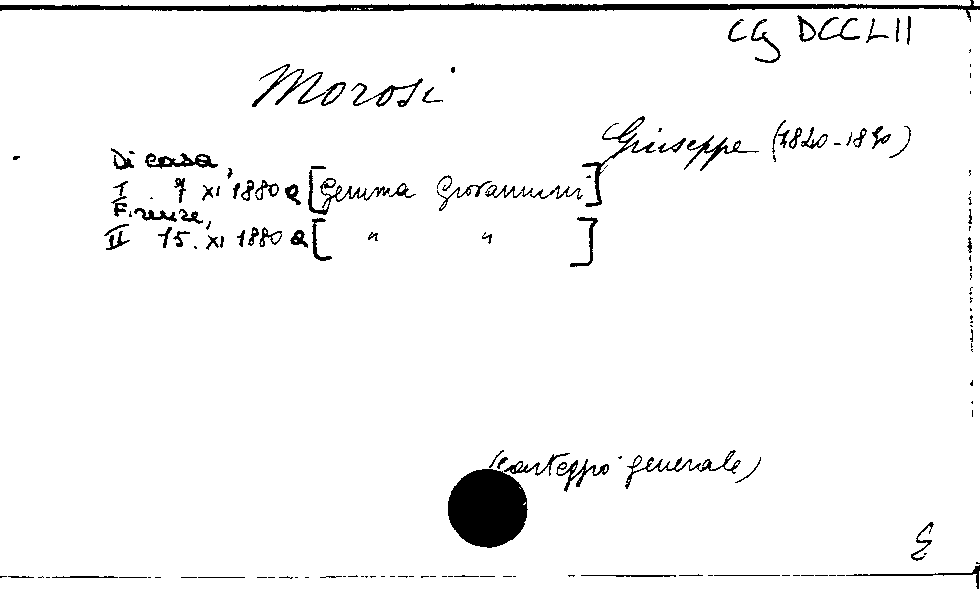 CG DCCLII
Morosi
Giuseppe (1820-1890)
Di casa,
I 7 XI 1880 a [Gemma Giovannini]
Firenze,
II 15. XI 1880 a [ " " ]
(carteggio generale)